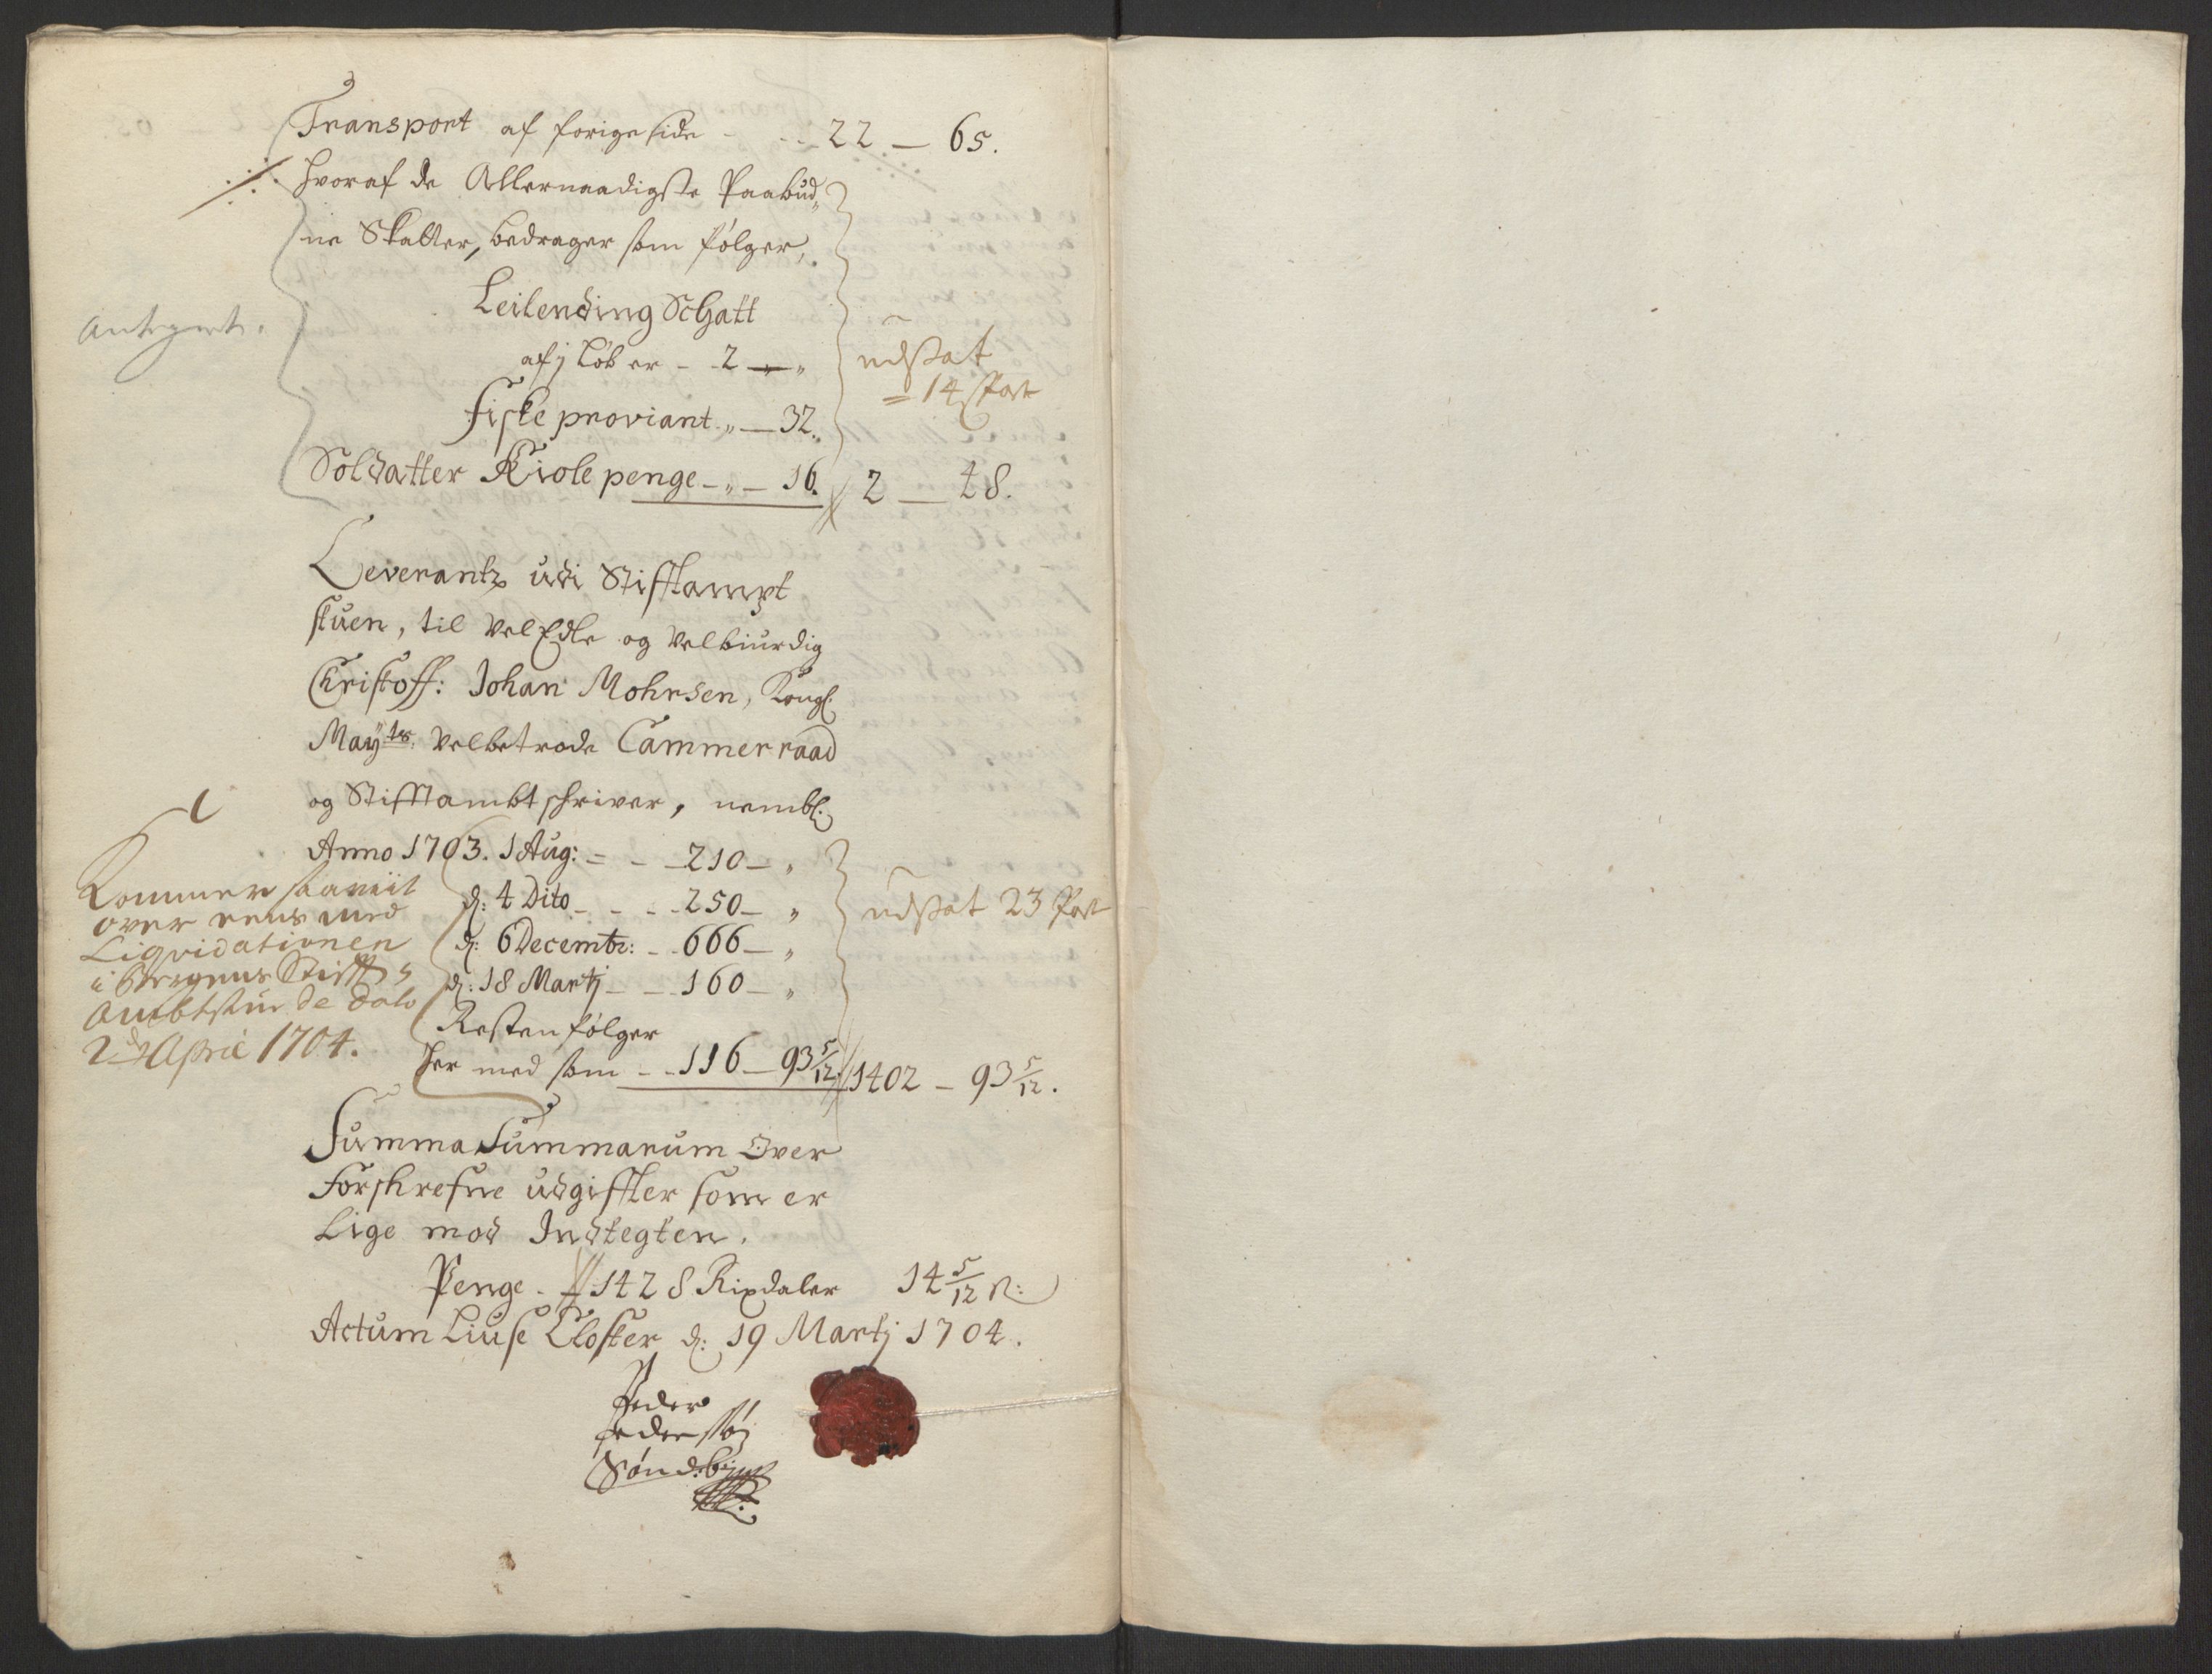 Transport af forige side - - - 22 — 65.
hvoraf de Allernaadigste Paabud„
ne Skatter, bedrager som følger,
Leilending Schatt
af j Løb er - - 2 — „
udstat
= 14 Post
Fiske proviant - „ — 32.
Soldatter Kiole penge - „ — 16. // 2 — 48.
Leverantz udi Stifftampt
stuen, til Vel Edle og Velbiurdig
Christoff: Johan Mohrsen, Kongl.
Mayts. Velbetrode Cammerraad
og Stifftambt schriver, nembl.
Anno 1703. 1 Aug: - - - 210 — „
d: 4 Dito - - - - 250 — „
udstat 23 Post
d: 6 Decembr: - - 666 — „
d: 18 Martj - - - 160 — „
Resten følger
her med som - - 116 — 93 5/12. // 1402 — 93 5/12.
Kommer saaviit
over eens med
Liqvidationen
i Bergens Stiffts
Ambtstue de dato
2den April 1704.
Summa Summarum Over
Forschrefne udgiffter som er
Lige mod Indtegten.
Penge - // 1428 Rixdaler 14 5/12 s:
Actum Liuse Closter d: 19 Martj 1704.
Peder
Pedersøn